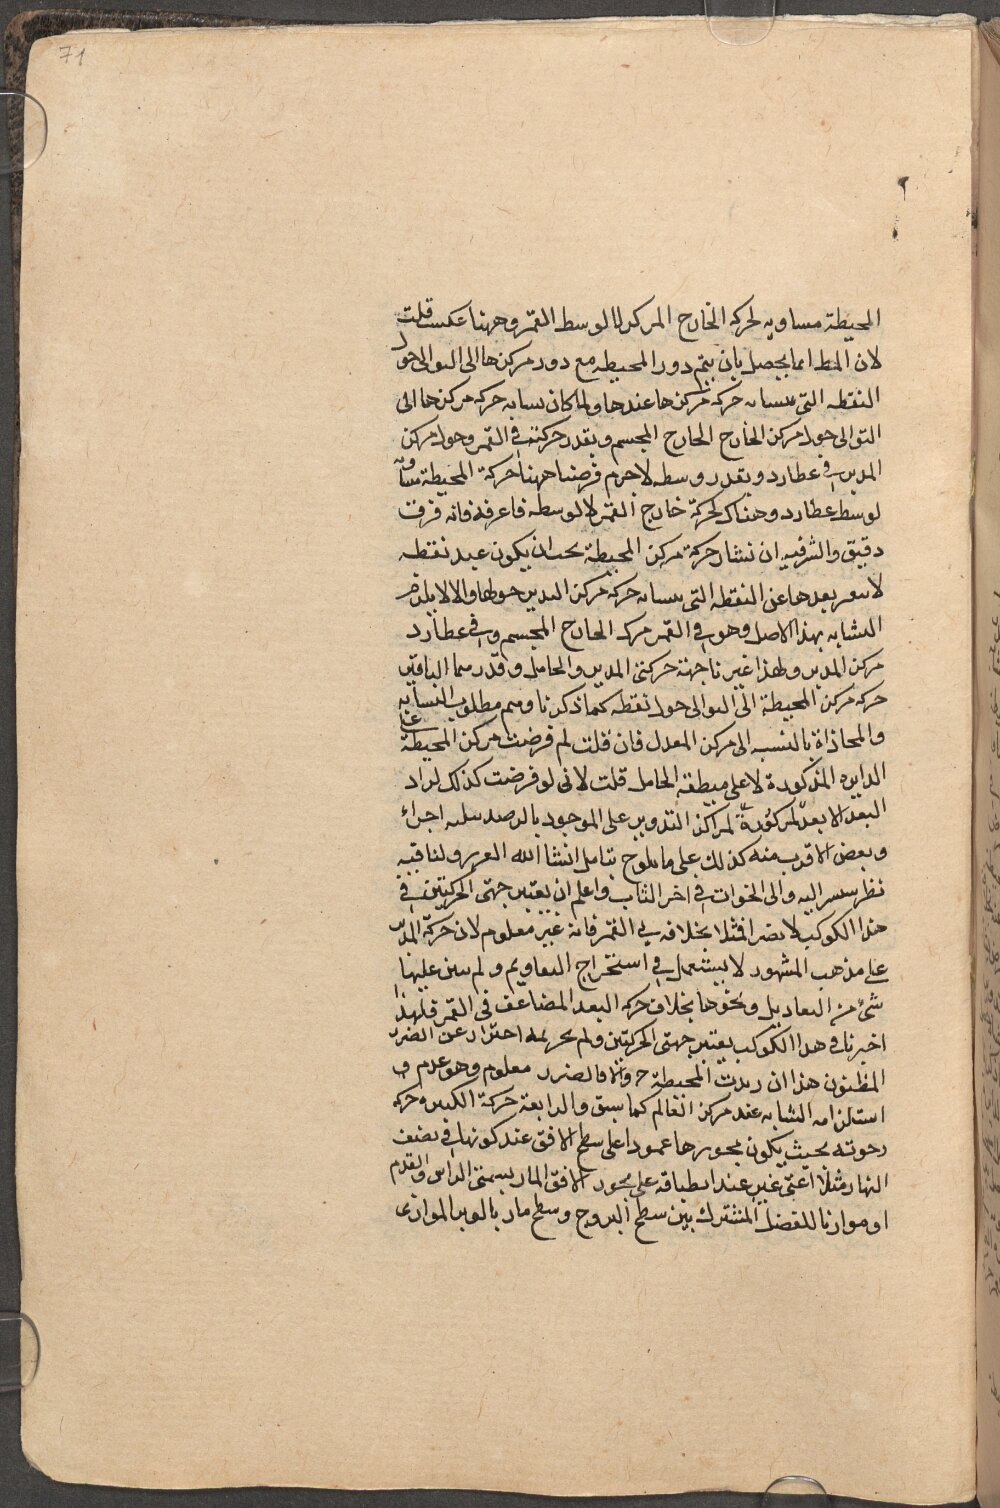 71
المحيطة مساويه لحركه الخارج المركز لا لوسط القمر وههنا عكست قلت
لان الخط انما يحصل بان يتم دور المحيطه مع دور مركزها الى التوالى حول
النقطه التى يتشابه حركه مركزها عندها ولما كان تشابه حركه مركزها الى
التوالى حول مركز الخارج الخارج المجسم وبقدر حركته فى القمر وحول مركز
المدير فى عطارد وبقدر وسطه لاجرم فرضنا ههنا حركة المحيطة مساويه
لوسط عطارد وهناك لحركة خارج القمر لا لوسطه فاعرفه فانه فرق
دقيق والشرفيه ان تشابه حركة مركز المحيطة يجب ان يكون عند نقطه
لا يتغير بعدها عن النقطه التى يتشابه حركه مركز التدوير حولها والا لا يلزم
التشابه بهذا الاصل وهو فى القمر مركز الخارج المجسم وفى عطارد
مركز المدير ولهذا غيرنا جهة حركتى المدير والحامل وقدرهما الباقيين
حركه مركز المحيطة الى التوالى حول نقطه كما ذكرنا ويتم مطلوب التشابه
والمحاذاة بالنسبه الى مركز المعدل فان قلت لم فرضت مركز المحيطة على
الدايره المذكورة لا على منطقه الحامل قلت لانى لو فرضت كذلك لزاد
البعد الابعد لمركزية لمراكز التدوير على الموجود بالرصد بثلثه اجزاء
وبعض الاقرب منه كذلك على ما يلوح بتامل انشا الله العزيز ولنا فيه
نظر سنشير اليه والى الخوات فى اخر الكتاب واعلم ان تغيير جهتى الحركتين فى
هذا الكوكب لا يضر اقتلا بخلافه فى القمر فانه غير معلوم لان حركة المدير
على مذهب المشهور لا يستعمل فى استخراج التعاويم ولم يبن عليها
شئ من التعاديل ونحوها بخلاف حركه البعد المضاعف فى القمر فلهذا
اخبرنا فى هذا الكوكب بتغيير جهتى الحركتين ولم نحرره احترازا عن الضرر
المظنون هذا ان زيدت المحيطة والا فالضرر معلوم وهو عدم
استلزامه التشابه عند مركز العالم كما سبق والرابعة حركة الكبيره حركه
رحويه بحيث يكون محورها عمودا على سطح الافق عند كونها فى نصف
النهار مثلا اعنى غير عند انطباقه على محور الافق المار بسمتى الراس والقدم
او موازنا للفصل المشترك بين سطح البروج وسطح مار بالوتر الموازى